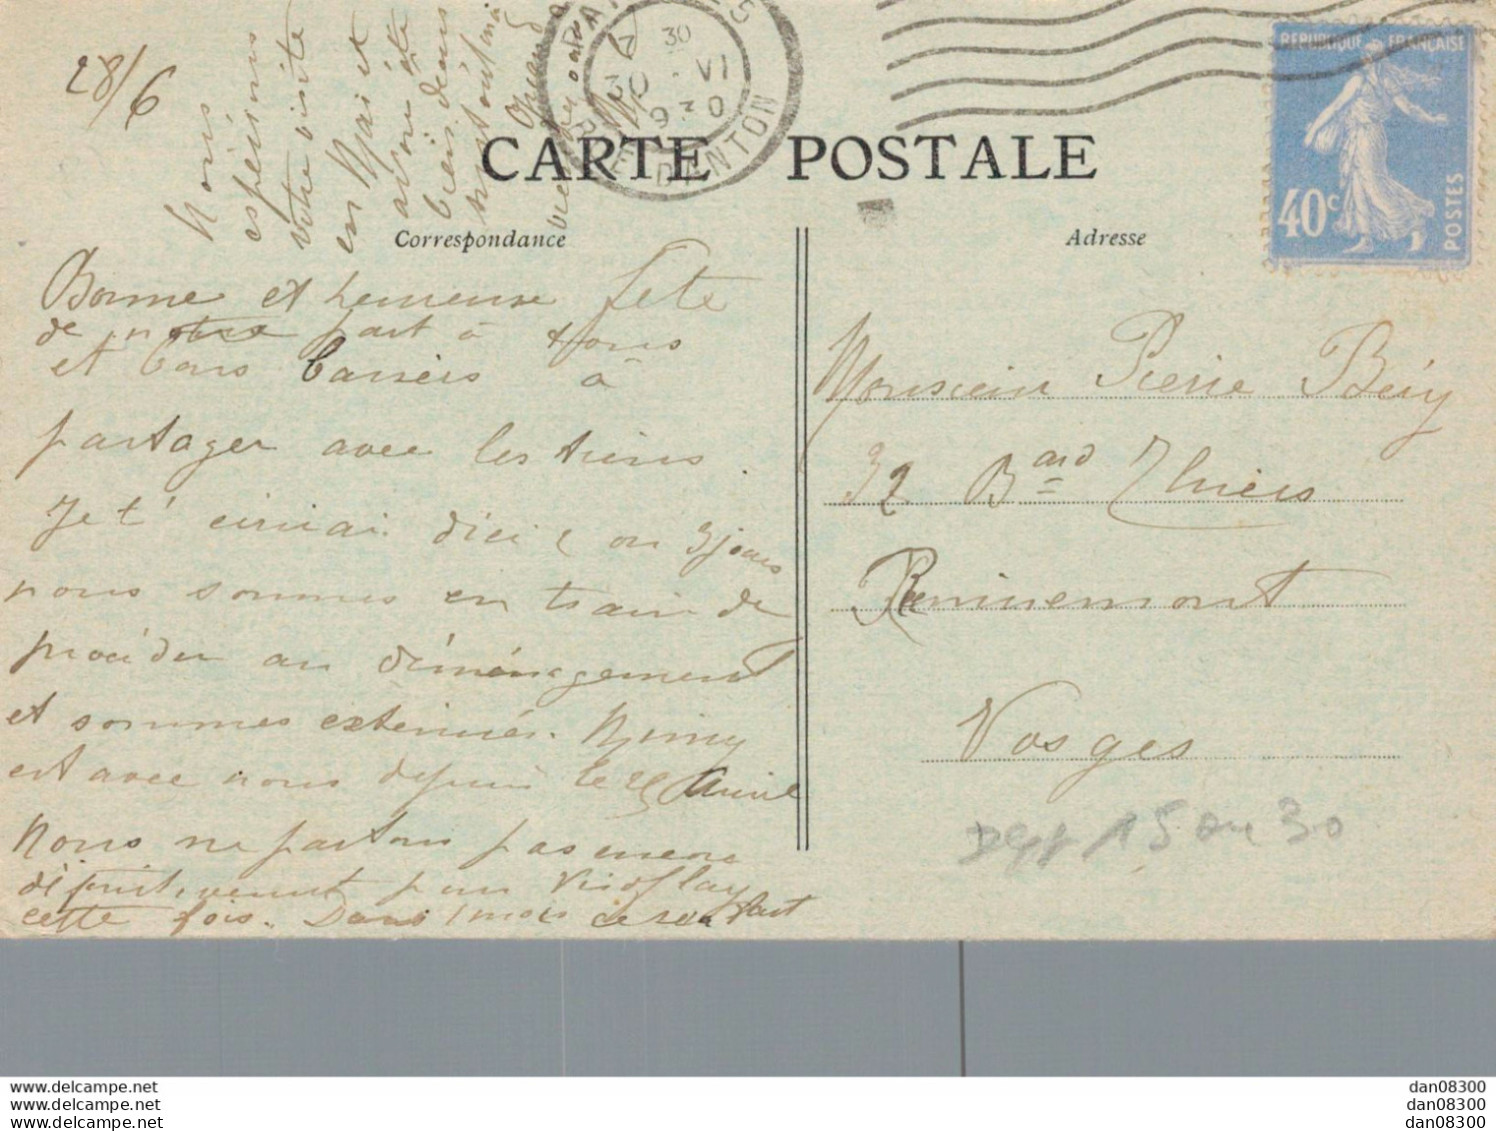 28/6
Nous
espérions
votre visite
en Mai et
avons été
bien
Quand
30
30 VI
1930
R. DANTON
REPUBLIQUE FRANÇAISE
40c
POSTES
CARTE POSTALE
Correspondance
Adresse
Bonne et heureuse fête
de notre part à tous
et bons baisers à
partager avec les tiens.
Je t'écrirai d'ici 2 ou 3 jours
nous sommes en train de
procéder au déménagement
et sommes exténués. Mimy
est avec nous depuis le 25 Avril
Nous ne partons pas encore
définitivement pour Viroflay
cette fois. Dans 1 mois ce sera fait
Monsieur Pierre Béry
32 Bard Thiers
Remiremont
Vosges
Dept 15 ou 30
www.delcampe.net
www.delcampe.net
www.delcampe.net
dan08300
dan08300
dan08300